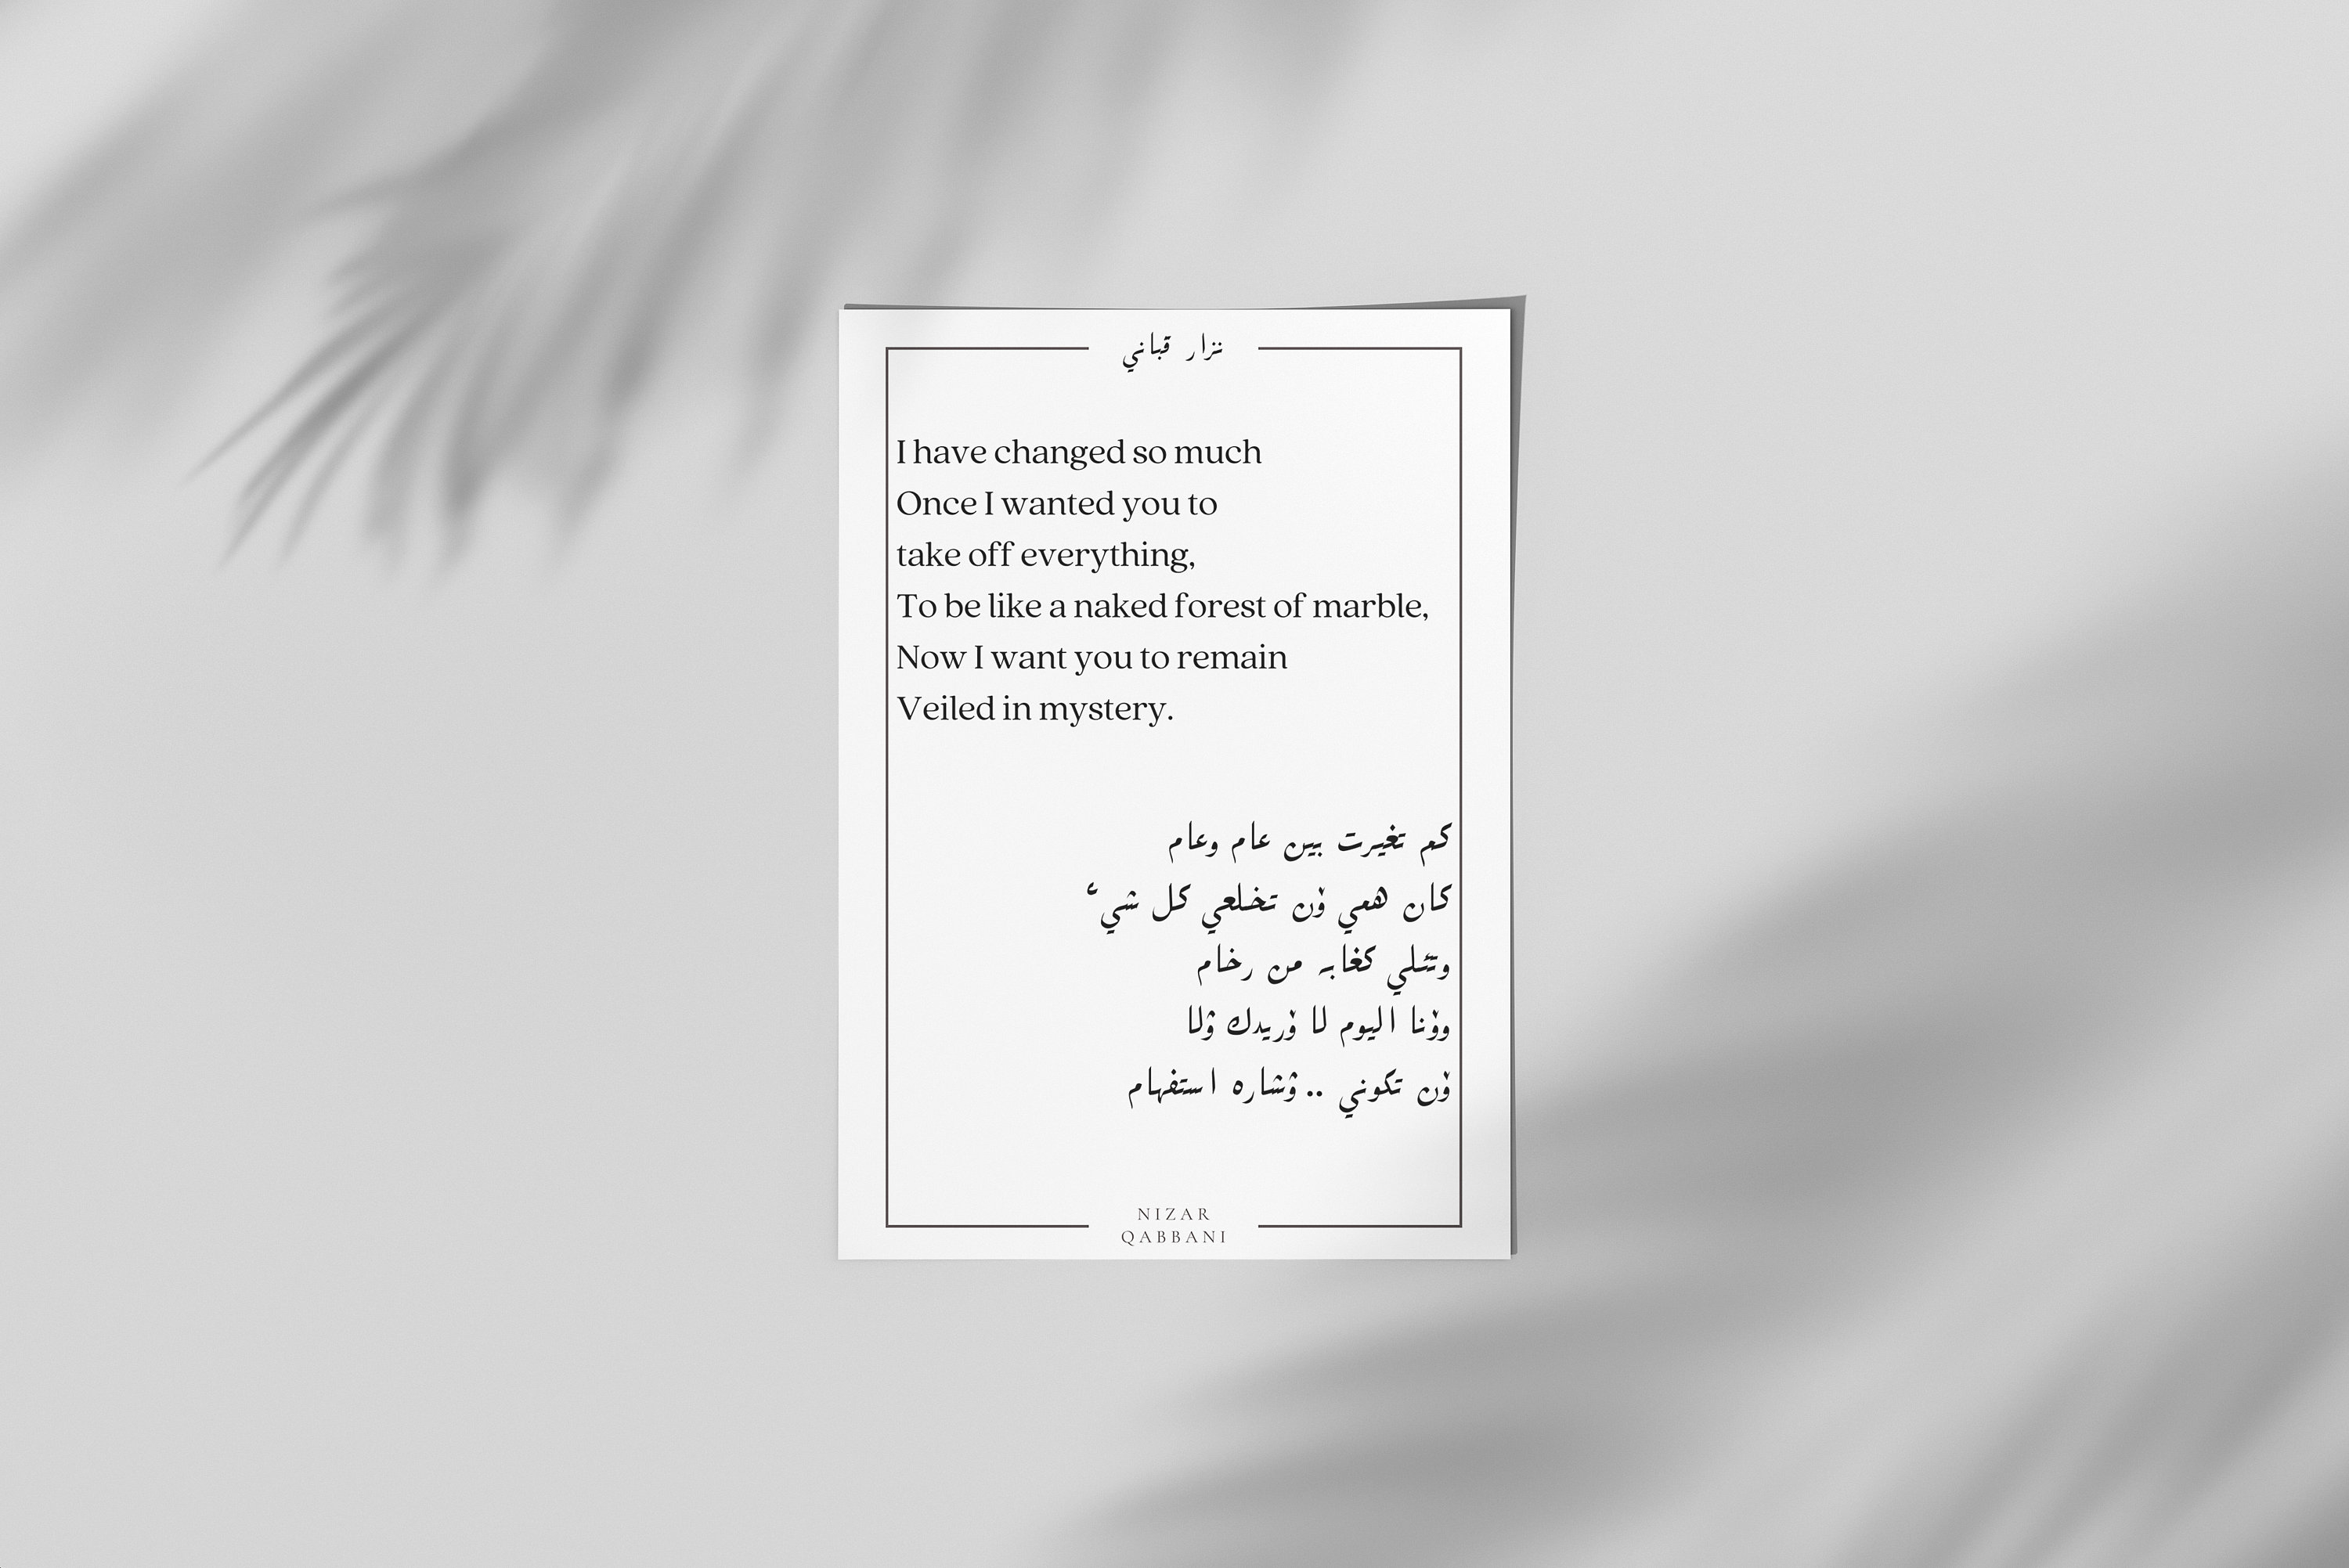 نزار قباني
I have changed so much
Once I wanted you to
take off everything,
To be like a naked forest of marble,
Now I want you to remain
Veiled in mystery.
كم تغيرت بين عام وعام
كان همي ۆن تخلعي كل شيء
وتئلي كغابه من رخام
وۆنا اليوم لا ۆريدك ۉلا
ۆن تكوني .. ۉشاره استفهام
NIZAR
QABBANI